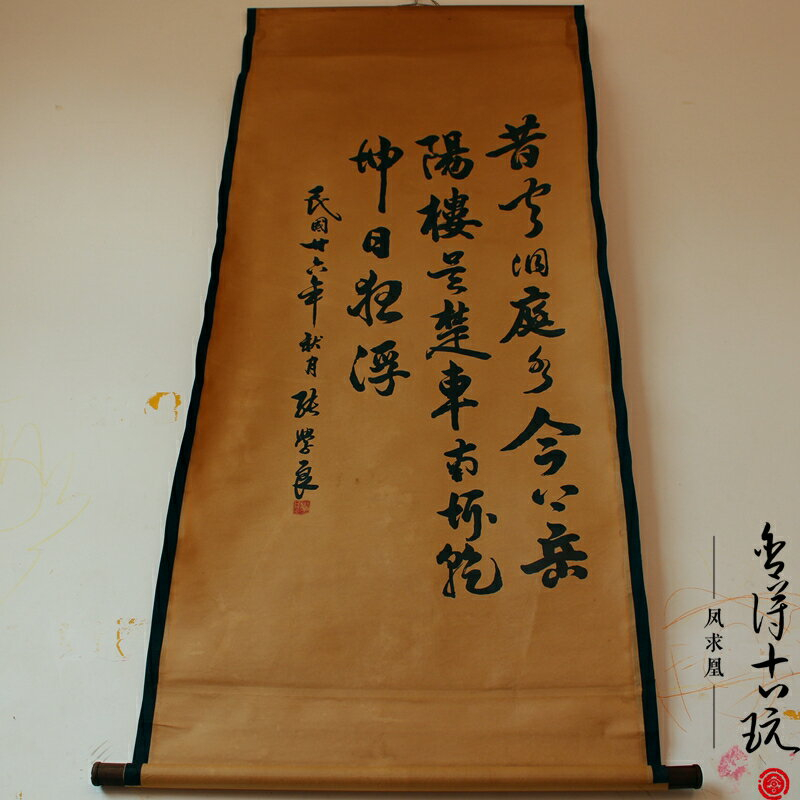 昔聞洞庭水今上岳
陽樓吴楚東南坼乾
坤日夜浮
民國廿六年秋月張學良
舍得十八玩
凤求凰